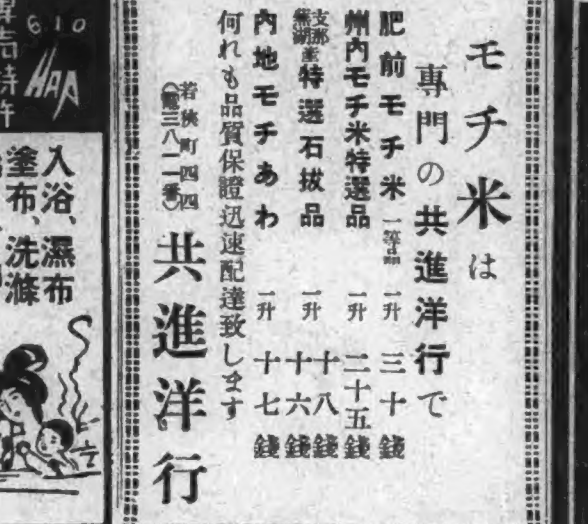 モチ米は
專門の共進洋行で
肥前モチ米 一等品 一升 三十錢
州內モチ米特選品 一升 二十五錢
支那蕪湖產特選石拔品 一升 十八錢 十六錢
內地モチあわ 一升 十七錢
何れも品質保證迅速配達致します
若狹町四四
(電三八一一番)
共進洋行
610
HAP
入浴、濕布
塗布、洗滌